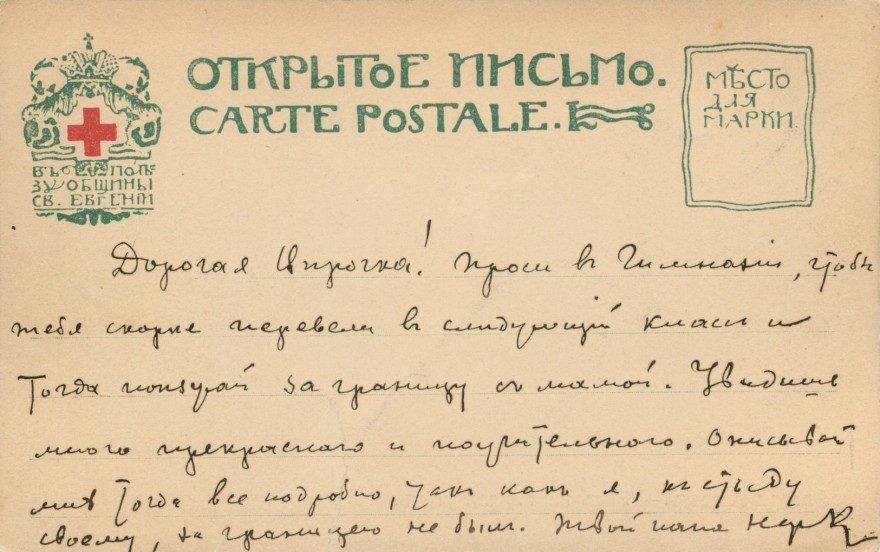 ОТКРЫТОЕ ПИСЬМО.
CARTE POSTALE.
МѢСТО
ДЛЯ
МАРКИ.
ВЪ ПОЛЬ
ЗУ ОБЩИНЫ
СВ. ЕВГЕНІИ
Дорогая! Проси в Гимназіи, чтобы
тебя скорѣе перевели в слѣдующій классъ и
тогда поѣзжай за границу съ мамой. Увидишь
много прекраснаго и поучительнаго. Описывай
мнѣ тогда все подробно, такъ какъ я, къ стыду
своему, за границею не былъ. Твой папа